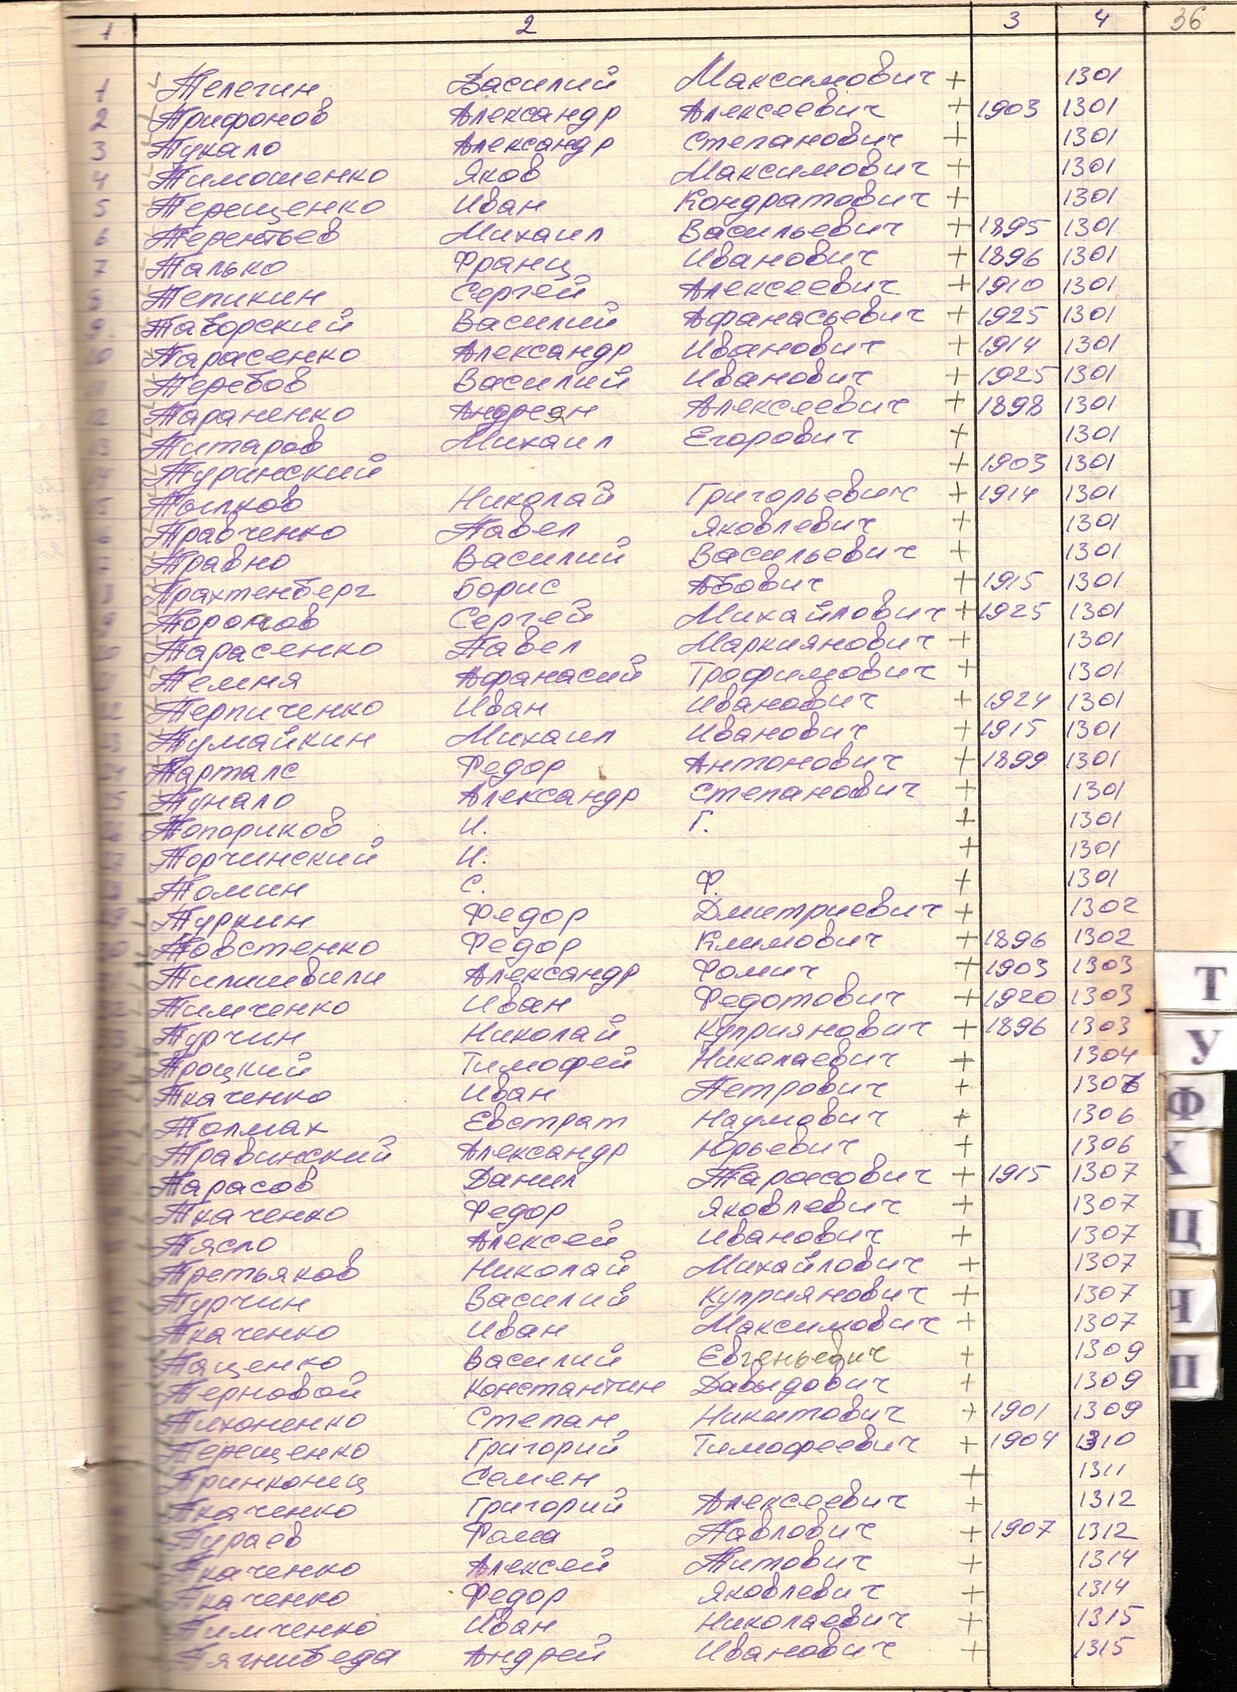 1 2 3 4 36
1 Телегин Василий Максимович + 1301
2 Трифонов Александр Алексеевич + 1903 1301
3 Тукало Александр Степанович + 1301
4 Тимошенко Яков Максимович + 1301
5 Терещенко Иван Кондратович + 1301
6 Терентьев Михаил Васильевич + 1895 1301
7 Талько Франц Иванович + 1896 1301
8 Тепикин Сергей Алексеевич + 1910 1301
9. Таворский Василий Афанасьевич + 1925 1301
10 Тарасенко Александр Иванович + 1914 1301
11 Теребов Василий Иванович + 1925 1301
12 Тараненко Андреян Алексеевич + 1898 1301
13 Титаров Михаил Егорович + 1301
14 Туринский + 1903 1301
5 Тылков Николай Григорьевич + 1914 1301
6 Травченко Павел Яковлевич + 1301
7 Травно Василий Васильевич + 1301
8 Трахтенберг Борис Абович + 1915 1301
9 Торопов Сергей Михайлович + 1925 1301
Тарасенко Павел Маркиянович + 1301
Темня Афанасий Трофимович + 1301
Терпиченко Иван Иванович + 1924 1301
Тумайкин Михаил Иванович + 1915 1301
Тарталс Федор Антонович + 1899 1301
Тунало Александр Степанович + 1301
Топориков И. Г. + 1301
Торчинский И. + 1301
Томин С. Ф. + 1301
Туркин Федор Дмитриевич + 1302
Товстенко Федор Климович + 1896 1302
Тилишвили Александр Фомич + 1903 1303
Тимченко Иван Федотович + 1920 1303
Турчин Николай Куприянович + 1896 1303
Троцкий Тимофей Николаевич + 1304
Ткаченко Иван Петрович + 1306
Толмах Евстрат Наумович + 1306
Травинский Александр Юрьевич + 1306
Тарасов Данил Тарасович + 1915 1307
Ткаченко Федор Яковлевич + 1307
Тясло Алексей Иванович + 1307
Третьяков Николай Михайлович + 1307
Турчин Василий Куприянович + 1307
Ткаченко Иван Максимович + 1307
Тащенко Василий Евгеньевич + 1309
Терновой Константин Давыдович + 1309
Тихоненко Степан Никитович + 1901 1309
Терещенко Григорий Тимофеевич + 1904 1310
Тринконец Семен + 1311
Ткаченко Григорий Алексеевич + 1312
Тураев Фома Павлович + 1907 1312
Ткаченко Алексей Титович + 1314
Ткаченко Федор Яковлевич + 1314
Тимченко Иван Николаевич + 1315
Тягнибеда Андрей Иванович + 1315
Т
У
Ф
Х
Ц
Ч